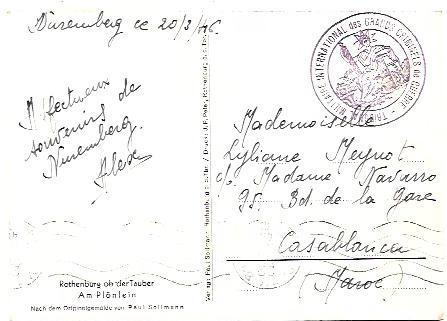 Nuremberg ce 20/3/46.
Affectueux
souvenirs de
Nuremberg.
Alex
Rothenburg ob der Tauber
Am Plönlein
Nach dem Originalgemälde von Paul Sollmann
Verlag: Paul Sollmann, Rothenburg o. d. Tbr. / Druck: J. P. Peter, Rothenburg o. d. Tbr.
MILITAIRE INTERNATIONAL des GRANDS CRIMINELS de GUERRE
Mademoiselle
Lyliane Meynot
c/o Madame Navarro
95. Bd. de la Gare
Casablanca
(Maroc)